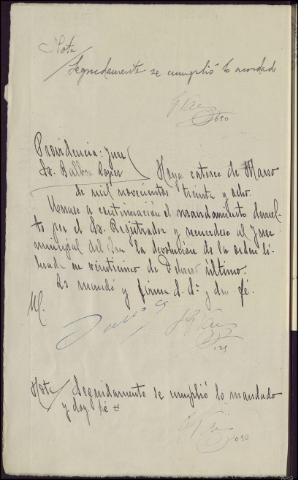 Nota
Seguidamente se cumplió lo acordado
Providencia: Juez
Sr. Ballbé López
Haya catorce de Marzo
de mil novecientos treinta y ocho
Unase a continuación el mandamiento devuel-
to por el Sr. Registrador y al Juez
municipal del la devolución de la orden li-
brada en veinticinco de último.
Lo mandó y firma S. Sª y doy fé.
M.
Nota Seguidamente se cumplió lo mandado
y doy fé =